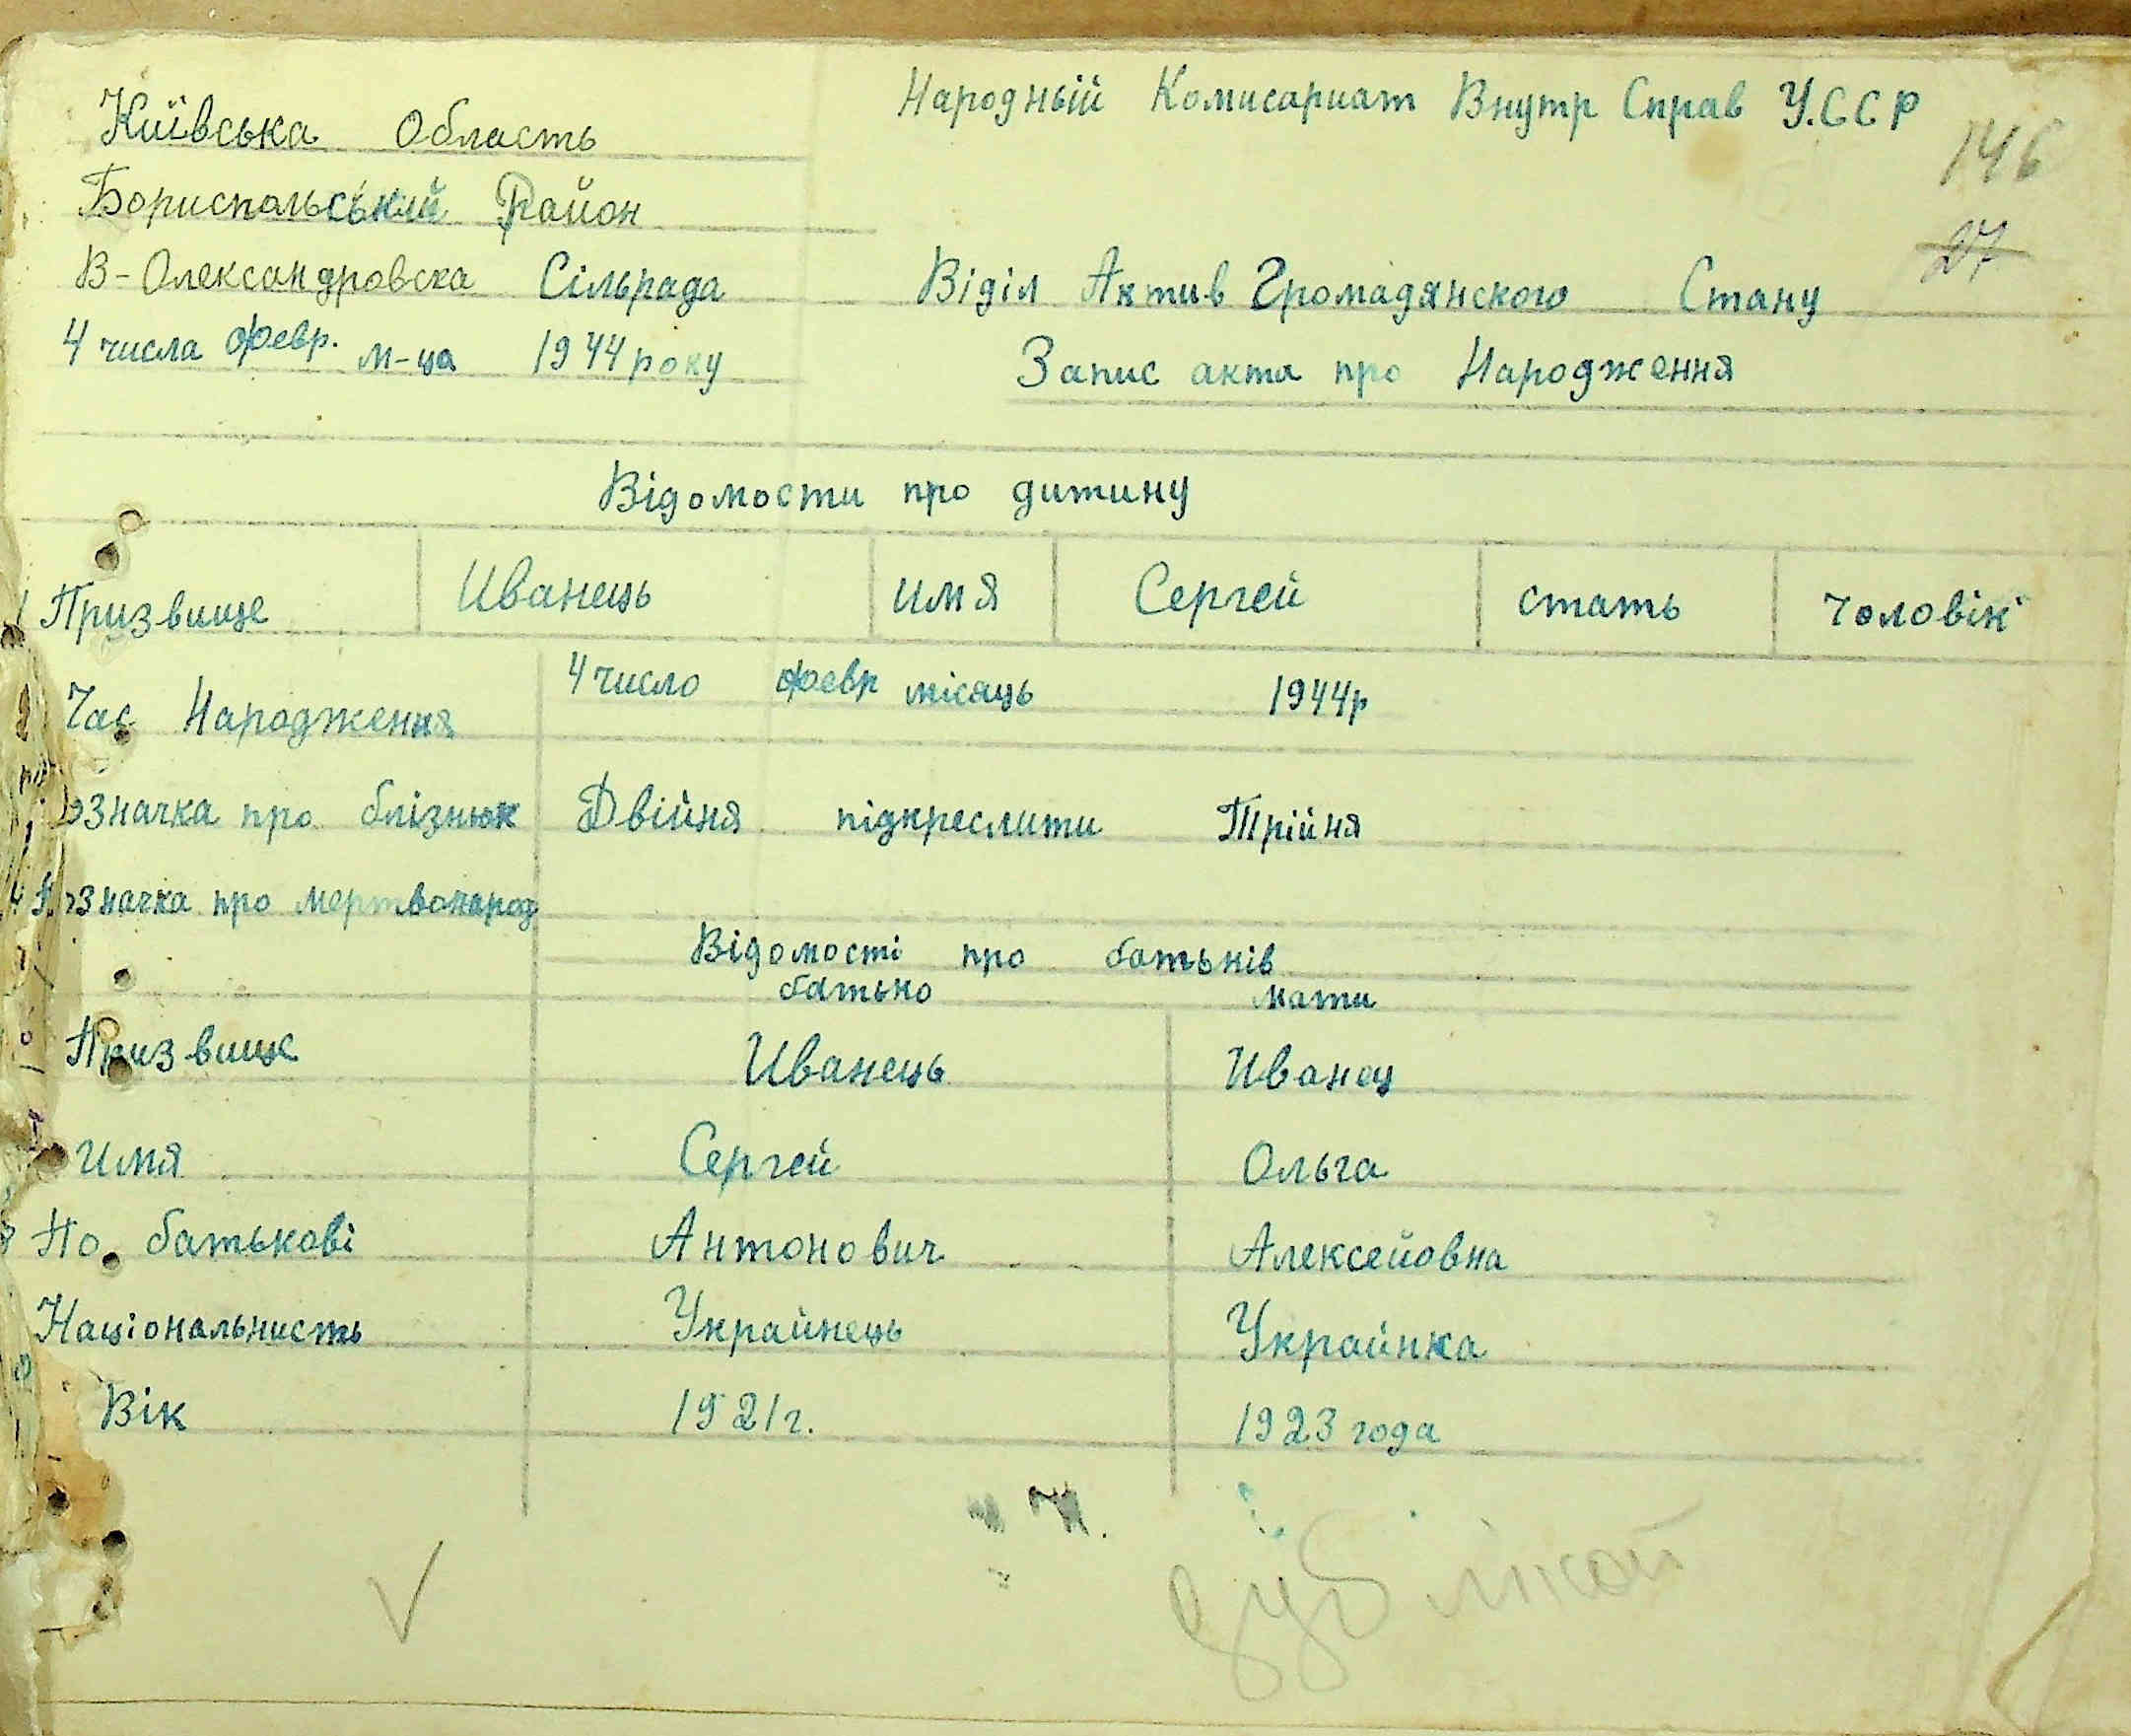 Київська Область
Народный Комисариат Внутр Справ У.ССР
146
Бориспольський Район
27
В-Олександровска Сільрада
Віділ Актив Громадянского Стану
4 числа февр. м-ца 1944 року
Запис акта про Народження
Відомости про дитину
1 Призвище Иванець имя Сергей стать чоловік
2 Час Народження 4 число февр місяць 1944р
означка про блізнюк Двійня підкреслити Трійня
4 Позначка про мертвонарод
Відомості про батьків
батько мати
Призвище Иванець Иванец
имя Сергей Ольга
По батькові Антонович Алексейовна
Націоналынисть Украйнець Украйнка
Вік 1921г. 1923 года